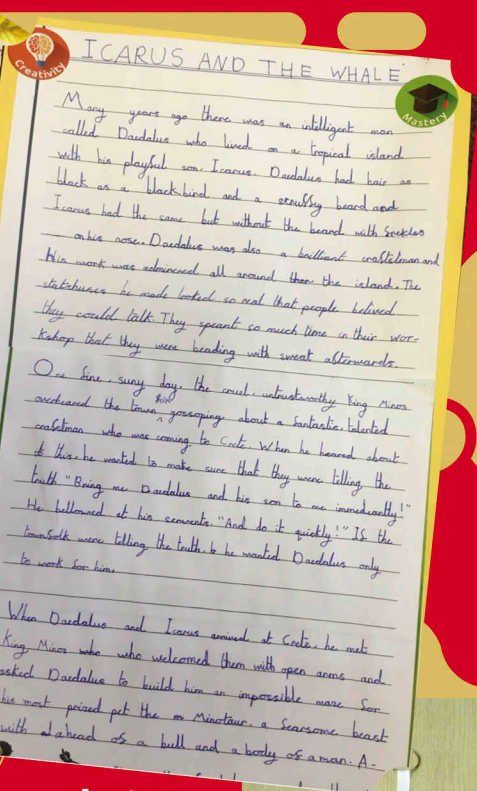 Creativity
ICARUS AND THE WHALE
Mastery
Many years ago there was an intelligent man
called Daedalus who lived on a tropical island
with his playful son, Icarus. Daedalus had hair as
black as a blackbird and a scruffy beard and
Icarus had the same but without the beard with freckles
on his nose. Daedalus was also a brilliant craftsman and
His work was admired all around the island. The
statchuses he made looked so real that people belived
they could talk. They speant so much time in their wor-
kshop that they were beading with sweat afterwards.
One fine, suny day, the cruel, untrustworthy King Minos
overheared the town folk gossoping about a fantastic, talented
craftman who was coming to Crete. When he heared about
this, he wanted to make sure that they were telling the
truth. "Bring me Daedalus and his son to me immediantly!"
He bellowed at his servents. "And do it quickly!" If the
townfolk were telling the truth, he wanted Daedalus only
to work for him.
When Daedalus and Icarus arrived at Crete, he met
King Minos who who welcomed them with open arms and
asked Daedalus to build him an impossible maze for
his most prized pet the Minotaur, a fearsome beast
with ahead of a bull and a body of a man. A-